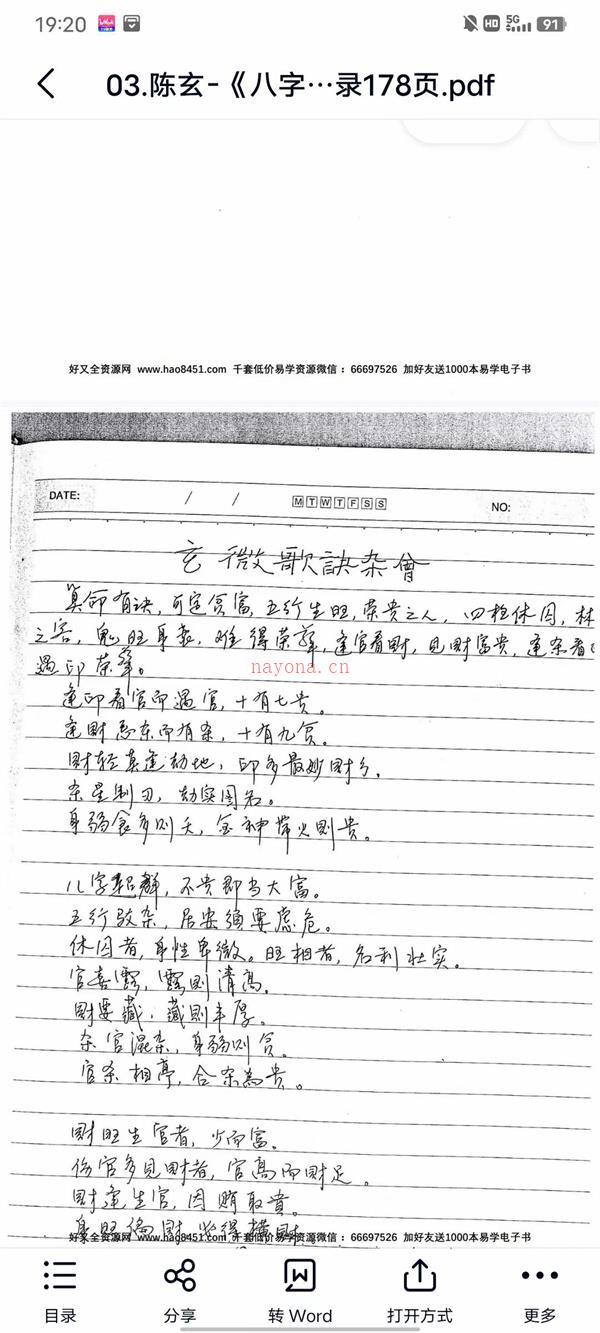 19:20
HD 5G 91
03.陈玄-《八字…录178页.pdf
好又全资源网 www.hao8451.com 千套低价易学资源微信 ：66697526 加好友送1000本易学电子书
DATE: / / M T W T F S S NO:
玄微歌訣杂會
算命有诀，可定贫富，五行生旺，荣贵之人，四柱休囚，
之害，鬼旺身衰，难得荣華，逢官看财，见财富贵，逢杀看
遇印荣華。
nayona.cn
逢印看官而遇官，十有七贵。
逢财忌杀而有杀，十有九贫。
财轻莫逢劫地，印多最妙财乡。
杀星制刃，劫实图名。
身弱食多则夭，金神带火则贵。
八字超群，不贵即当大富。
五行驳杂，居安须要虑危。
休囚者，身性卑微。旺相者，名利壮实。
官喜露，露则清高。
财要藏，藏則丰厚。
杀官混杂，身弱则贫。
官杀相亭，合杀為贵。
财旺生官者，少而富。
伤官多见财者，官高而财足。
财逢生官，因贿取貴。
身旺偏财，必得橫财
好又全资源网 www.hao8451.com 千套低价易学资源微信 ：66697526 加好友送1000本易学电子书
目录 分享 转 Word 打开方式 更多